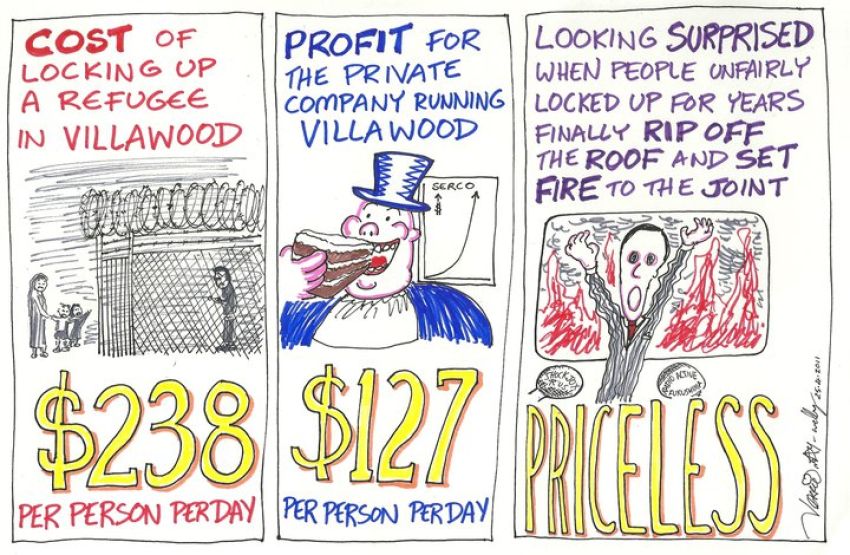 COST OF
LOCKING UP
A REFUGEE
IN VILLAWOOD
$238
PER PERSON PER DAY
PROFIT FOR
THE PRIVATE
COMPANY RUNNING
VILLAWOOD
SERCO
$
$127
PER PERSON PER DAY
LOOKING SURPRISED
WHEN PEOPLE UNFAIRLY
LOCKED UP FOR YEARS
FINALLY RIP OFF
THE ROOF AND SET
FIRE TO THE JOINT
SHOCK JOX
R US
FUKUSHIMA
PRICELESS